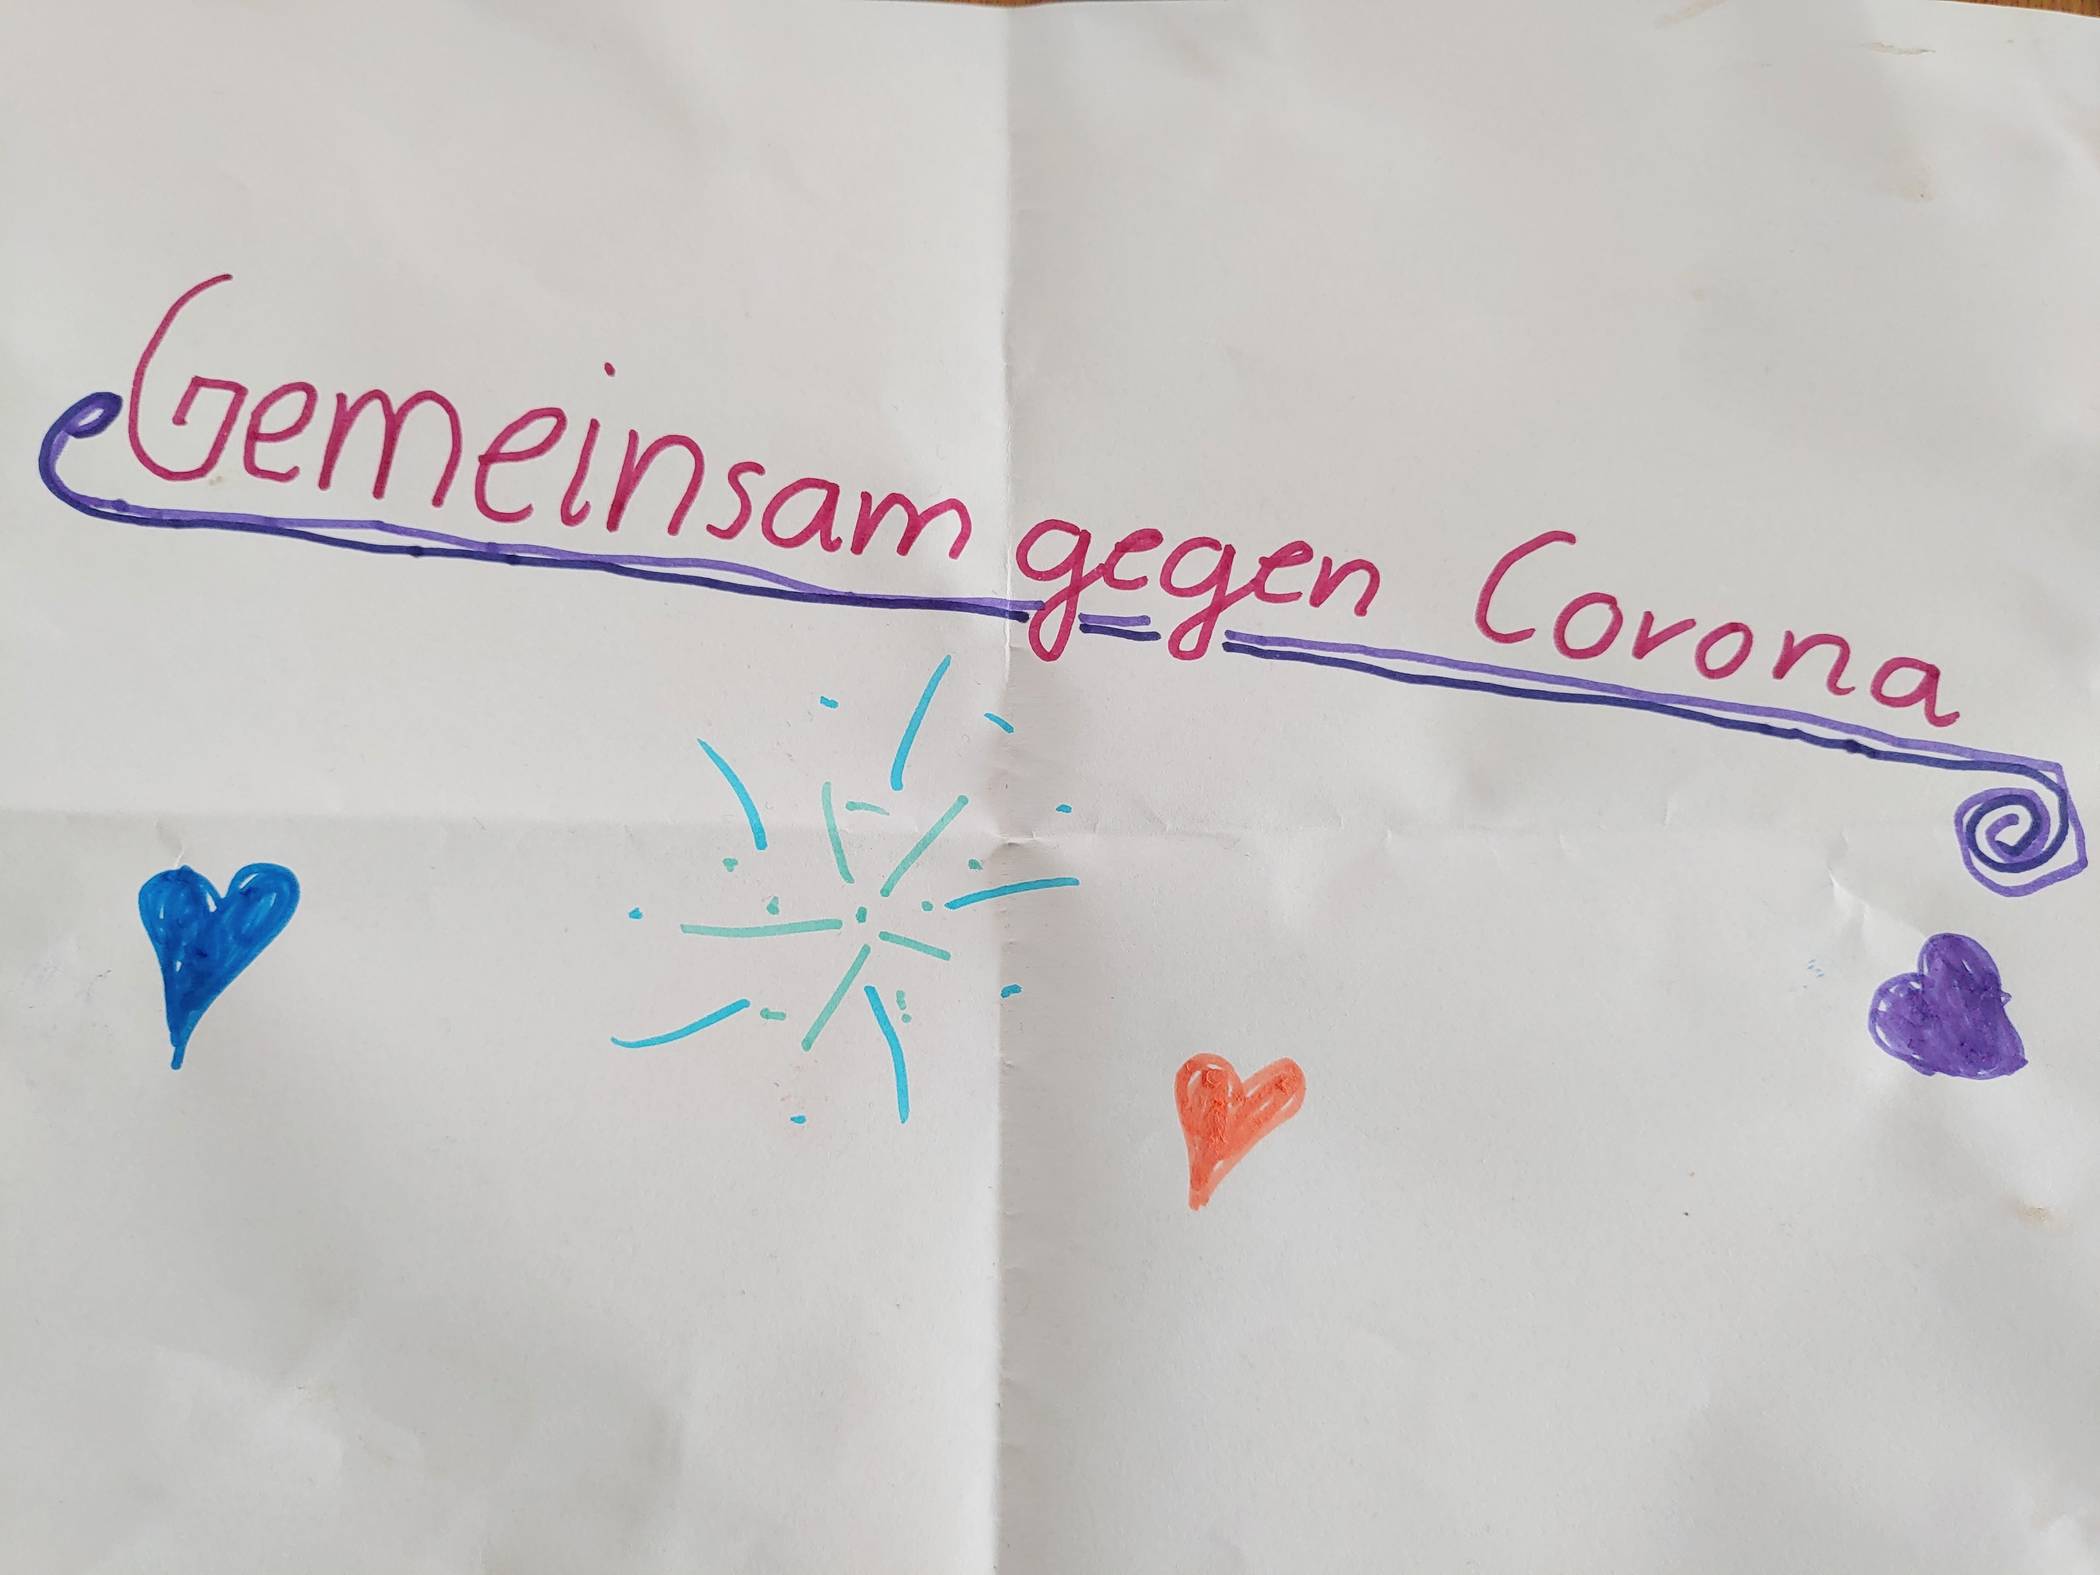 Gemeinsam gegen Corona